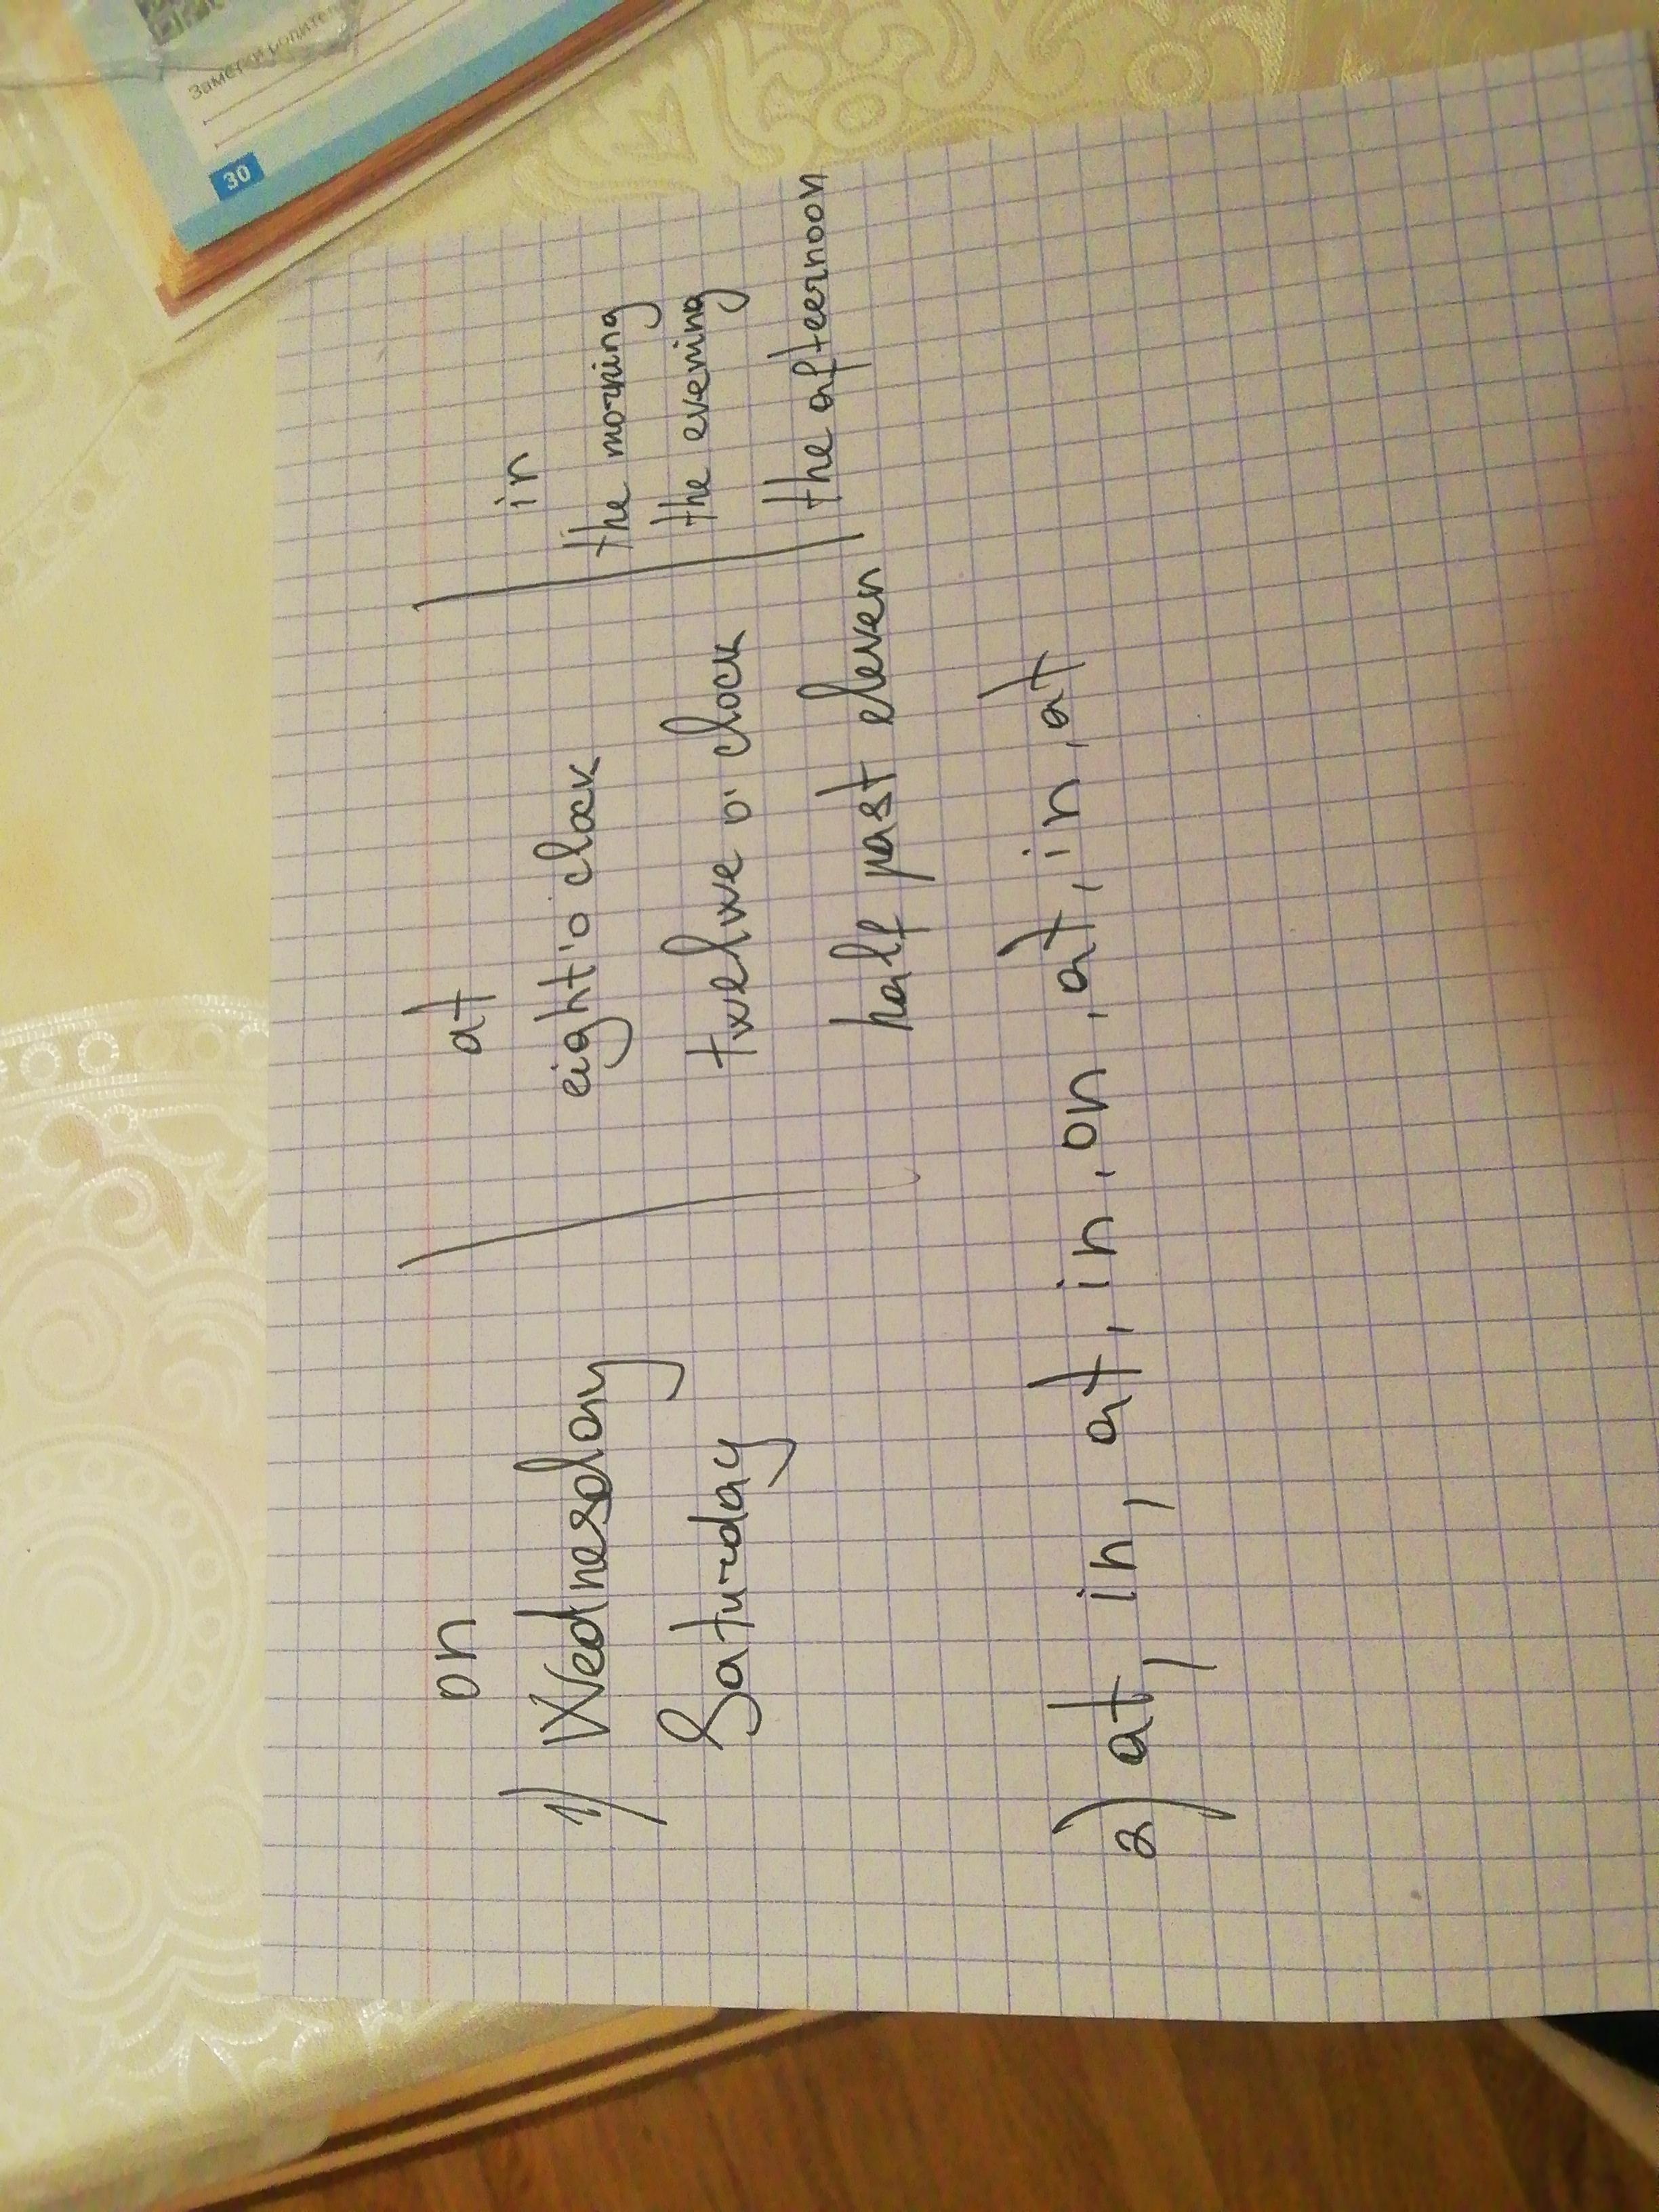 on
at
in
1) Wednesday
eight'o clock
the morning
Saturday
twelwe o' clock
the evening
half past eleven
the afteernoon
2) at, in, at, in, on, at, in, at
30
Заметки